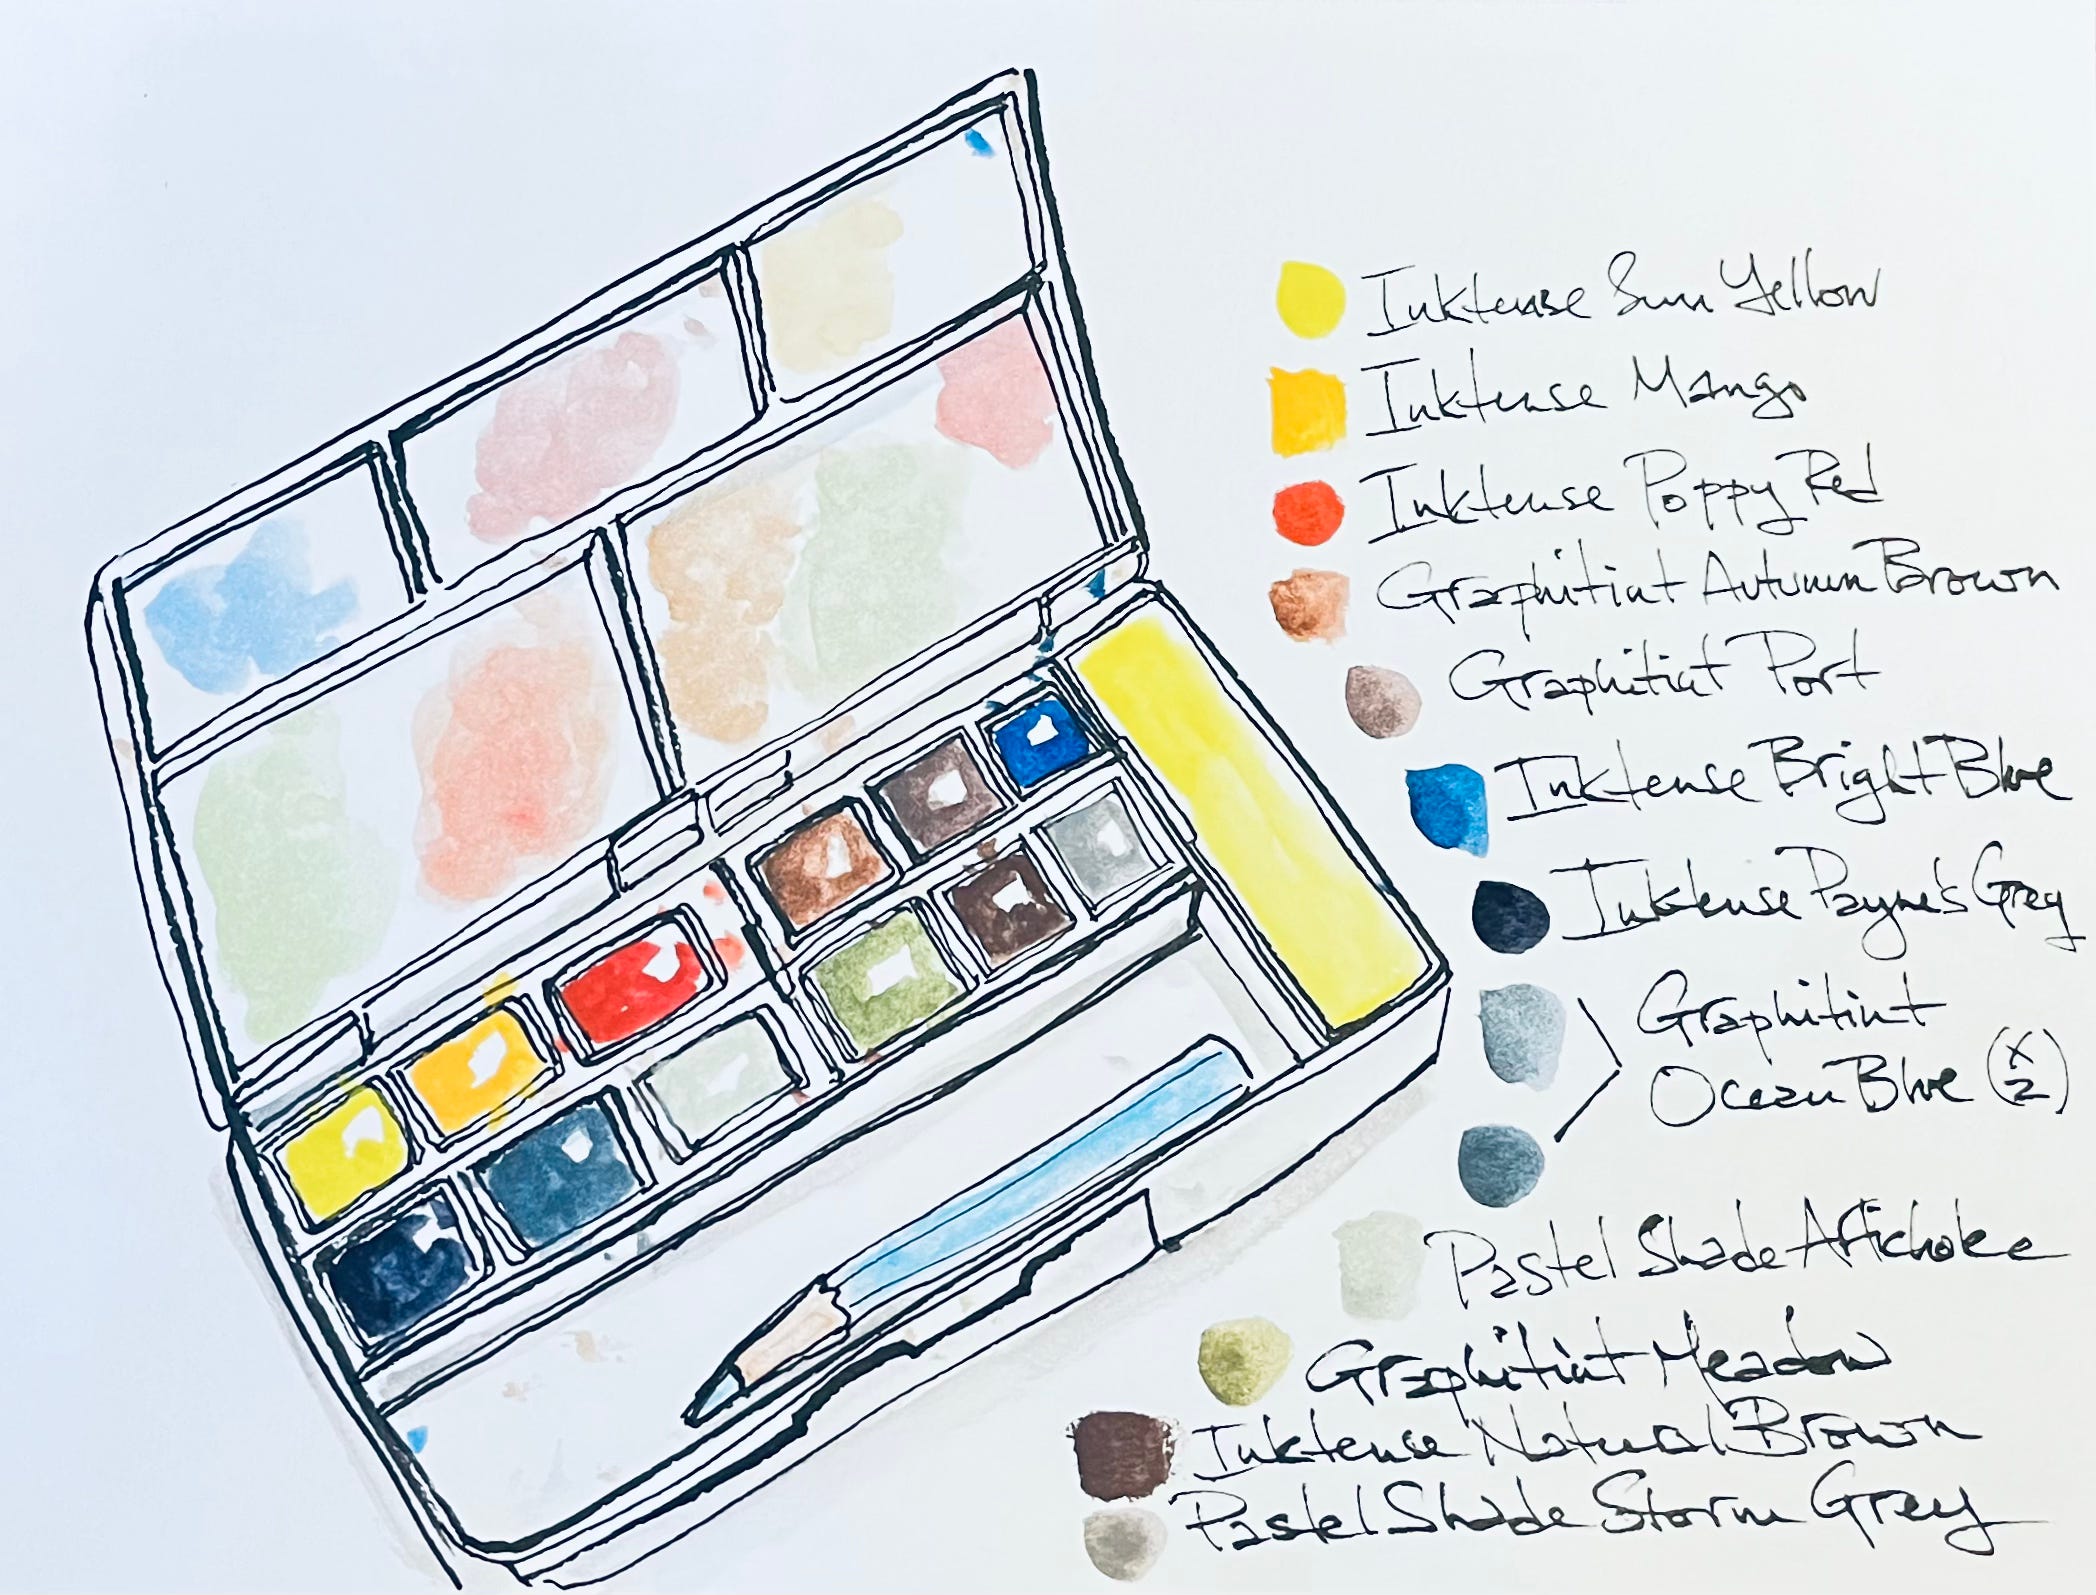 Inktense Sun Yellow
Inktense Mango
Inktense Poppy Red
Graphitint Autumn Brown
Graphitint Port
Inktense Bright Blue
Inktense Payne's Grey
Graphitint
Ocean Blue (x2)
Pastel Shade Artichoke
Graphitint Meadow
Inktense Natural Brown
Pastel Shade Storm Grey